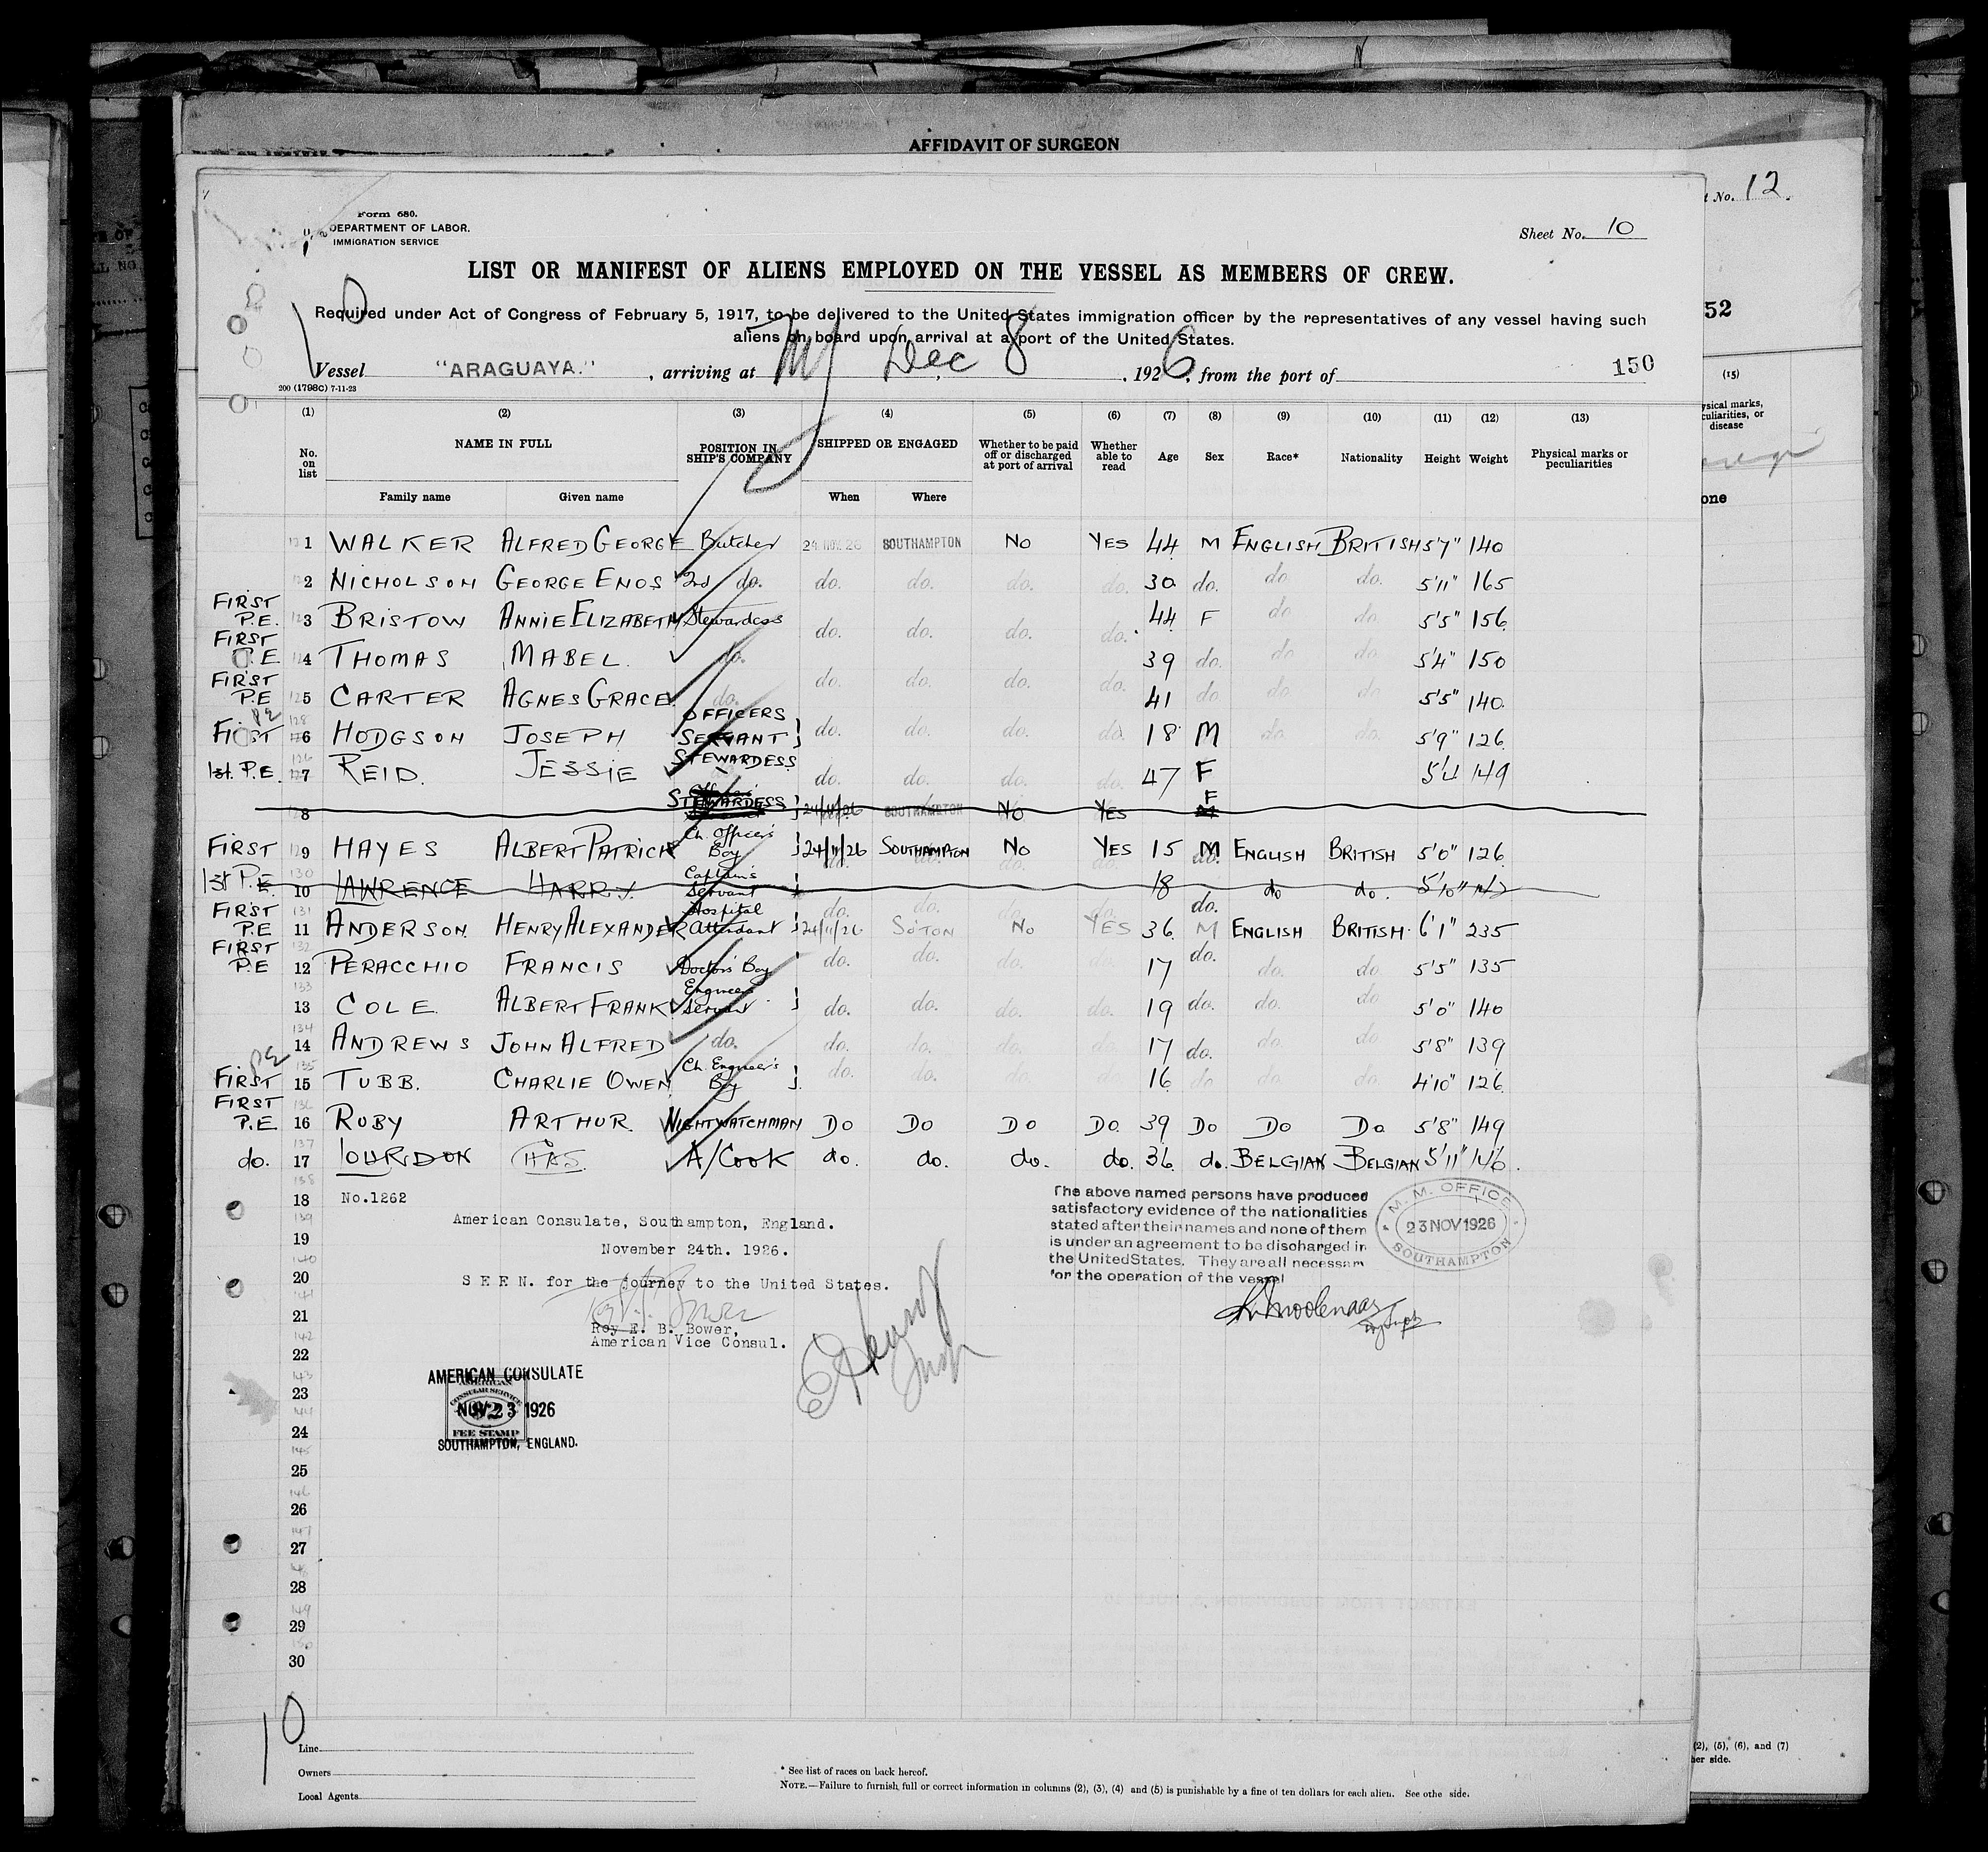 AFFIDAVIT OF SURGEON
No. 12.
Form 680.
DEPARTMENT OF LABOR.
IMMIGRATION SERVICE
Sheet No. 10
LIST OR MANIFEST OF ALIENS EMPLOYED ON THE VESSEL AS MEMBERS OF CREW.
Required under Act of Congress of February 5, 1917, to be delivered to the United States immigration officer by the representatives of any vessel having such
aliens on board upon arrival at a port of the United States.
52
Vessel "ARAGUAYA." , arriving at NY Dec 8 , 1926, from the port of 150
200 (1798c) 7-11-23
(1) (2) (3) (4) (5) (6) (7) (8) (9) (10) (11) (12) (13) (15)
No. on list NAME IN FULL POSITION IN SHIP'S COMPANY SHIPPED OR ENGAGED Whether to be paid off or discharged at port of arrival Whether able to read Age Sex Race* Nationality Height Weight Physical marks or peculiarities
Family name Given name When Where
1 WALKER ALFRED GEORGE Butcher 24 NOV 26 SOUTHAMPTON No YES 44 M ENGLISH BRITISH 5'7" 140
2 NICHOLSON GEORGE ENOS 2nd do. do. do. do. do. 30 do. do do. 5'11" 165
FIRST P.E. 3 BRISTOW ANNIE ELIZABETH Stewardess do. do. do. do. 44 F do do. 5'5" 156
FIRST P.E 4 THOMAS MABEL do. do. do. do. do. 39 do. do do. 5'4" 150
FIRST P.E 5 CARTER AGNES GRACE do. do. do. do. do. 41 do do do 5'5" 140
PE FIRST 6 HODGSON JOSEPH OFFICERS SERVANT do. do. do. do. 18 M do. do. 5'9" 126
1st. P.E. 7 REID. JESSIE STEWARDESS do. do. do. do. 47 F 5'4 149
8 STEWARDESS 24/11/26 SOUTHAMPTON No YES F
FIRST 9 HAYES ALBERT PATRICK Ch. Officer's Boy 24/11/26 SOUTHAMPTON No YES 15 M ENGLISH BRITISH 5'0" 126
1st P.E. 10 LAWRENCE HARRY. Captain's Servant 18 do. do do. 5'10"
FIRST P.E 11 ANDERSON HENRY ALEXANDER Hospital Attendant 24/11/26 SO'TON No YES 36 M ENGLISH BRITISH 6'1" 235
FIRST P.E 12 PERACCHIO FRANCIS Doctors' Boy do. do. do. do. 17 do. do. do 5'5" 135
13 COLE ALBERT FRANK Engineers Servant do. do. do. do. 19 do. do. do 5'0" 140
14 ANDREWS JOHN ALFRED do. do. do. do. do. 17 do. do. do 5'8" 139
PE FIRST 15 TUBB. CHARLIE OWEN Ch. Engineer's Boy do. do. do do 16 do do. do. 4'10" 126
FIRST P.E. 16 RUBY ARTHUR NIGHTWATCHMAN Do Do Do Do. 39 Do Do Do 5'8" 149
do. 17 A/COOK do. do. do. do. 36 do. BELGIAN BELGIAN 5'11" 146
18 No.1262
19
20
21
22
23
24
25
26
27
28
29
30
American Consulate, Southampton, England.
November 24th. 1926.
S E E N. for the journey to the United States.
Roy E. B. Bower,
American Vice Consul.
AMERICAN CONSULATE
AMERICAN
CONSULAR SERVICE
NOV 23 1926
FEE STAMP
SOUTHAMPTON, ENGLAND.
The above named persons have produced
satisfactory evidence of the nationalities
stated after their names and none of them
is under an agreement to be discharged in
the United States. They are all necessary
for the operation of the vessel
M. M. OFFICE
23 NOV 1926
SOUTHAMPTON
10
Line
Owners
Local Agents
* See list of races on back hereof.
NOTE.—Failure to furnish full or correct information in columns (2), (3), (4) and (5) is punishable by a fine of ten dollars for each alien. See othe side.
(2), (5), (6), and (7)
her side.